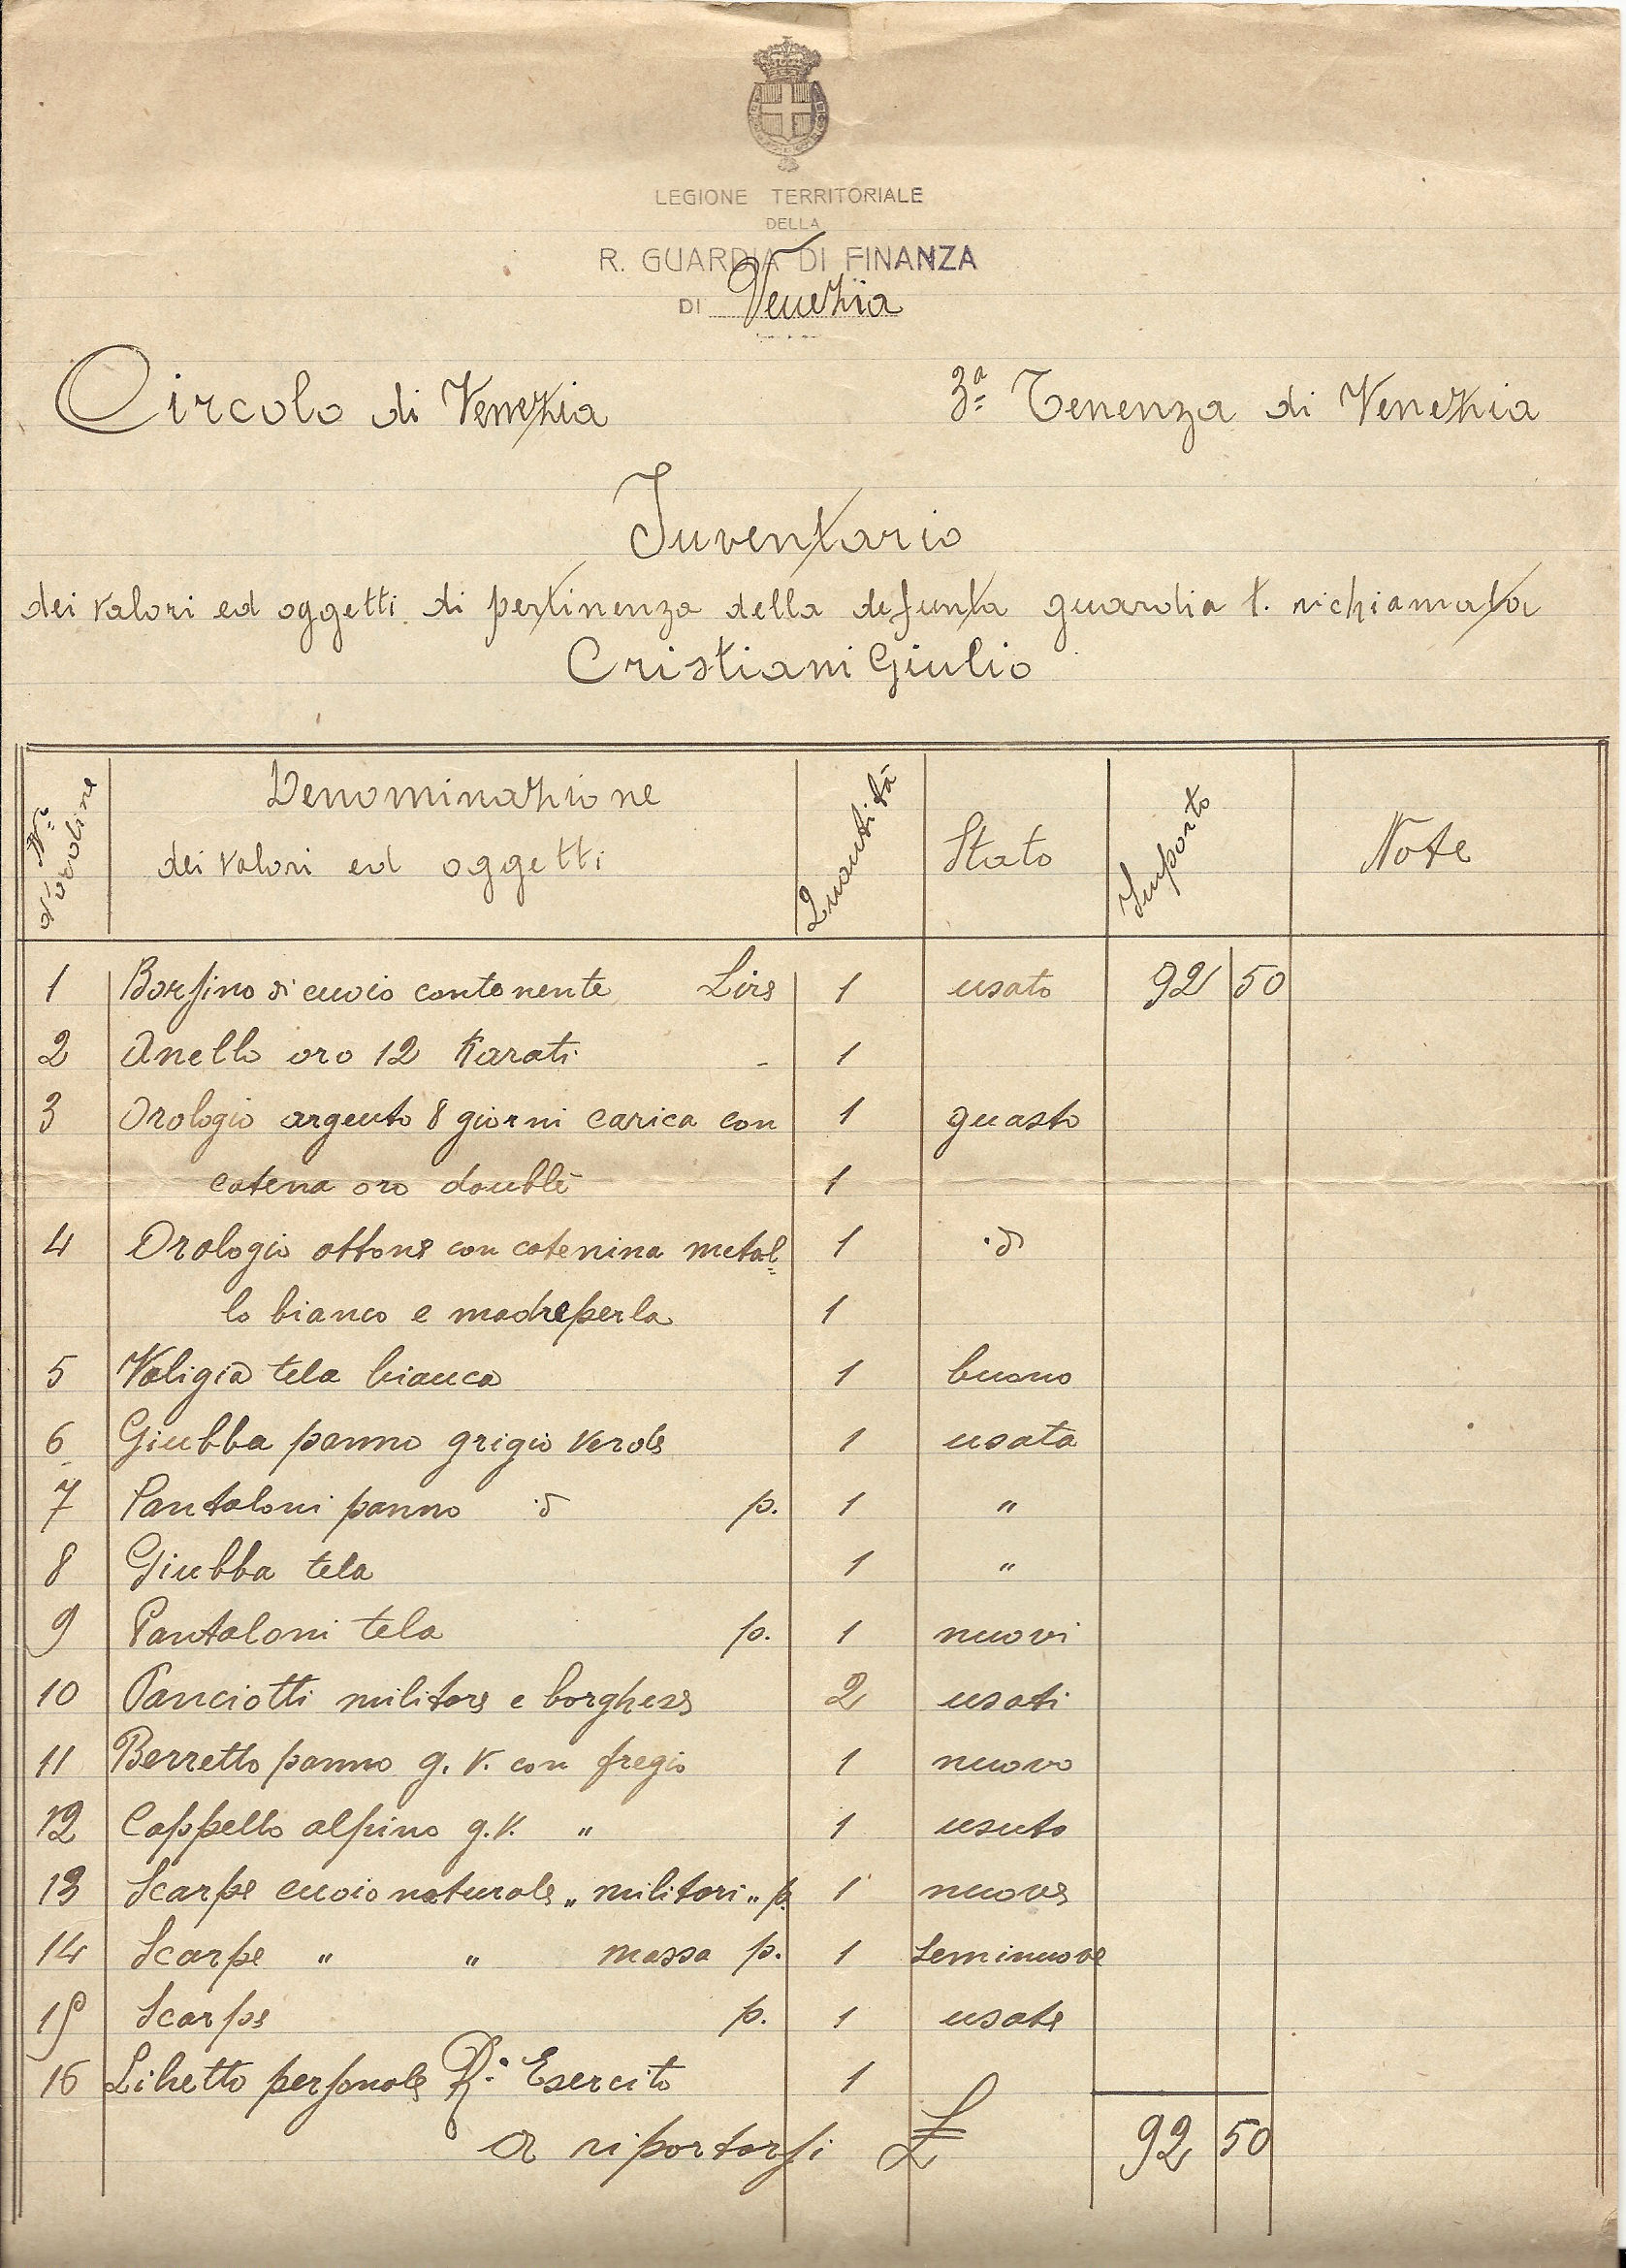 LEGIONE TERRITORIALE
DELLA
R. GUARDIA DI FINANZA
DI Venezia
Circolo di Venezia
3ª Tenenza di Venezia
Inventario
dei valori ed oggetti di pertinenza della defunta guardia t. richiamata
Cristiani Giulio
N.° d'ordine Denominazione dei valori ed oggetti Quantità Stato Importo Note
1 Borsino di cuoio contenente Lire 1 usato 92 50
2 Anello oro 12 Karati - 1
3 Orologio argento 8 giorni carica con 1 guasto
catena oro doublè 1
4 Orologio ottone con catenina metal= 1 id
lo bianco e madreperla 1
5 Valigia tela bianca 1 buono
6 Giubba panno grigio verde 1 usata
7 Pantaloni panno id p. 1 "
8 Giubba tela 1 "
9 Pantaloni tela p. 1 nuovi
10 Panciotti militare e borghese 2 usati
11 Berretto panno g. v. con fregio 1 nuovo
12 Cappello alpino g.v. " 1 usato
13 Scarpe cuoio naturale "militari" p. 1 nuove
14 Scarpe " " massa p. 1 seminuove
15 Scarpe p. 1 usate
16 Libretto personale R.° Esercito 1
a riportarsi £ 92 50